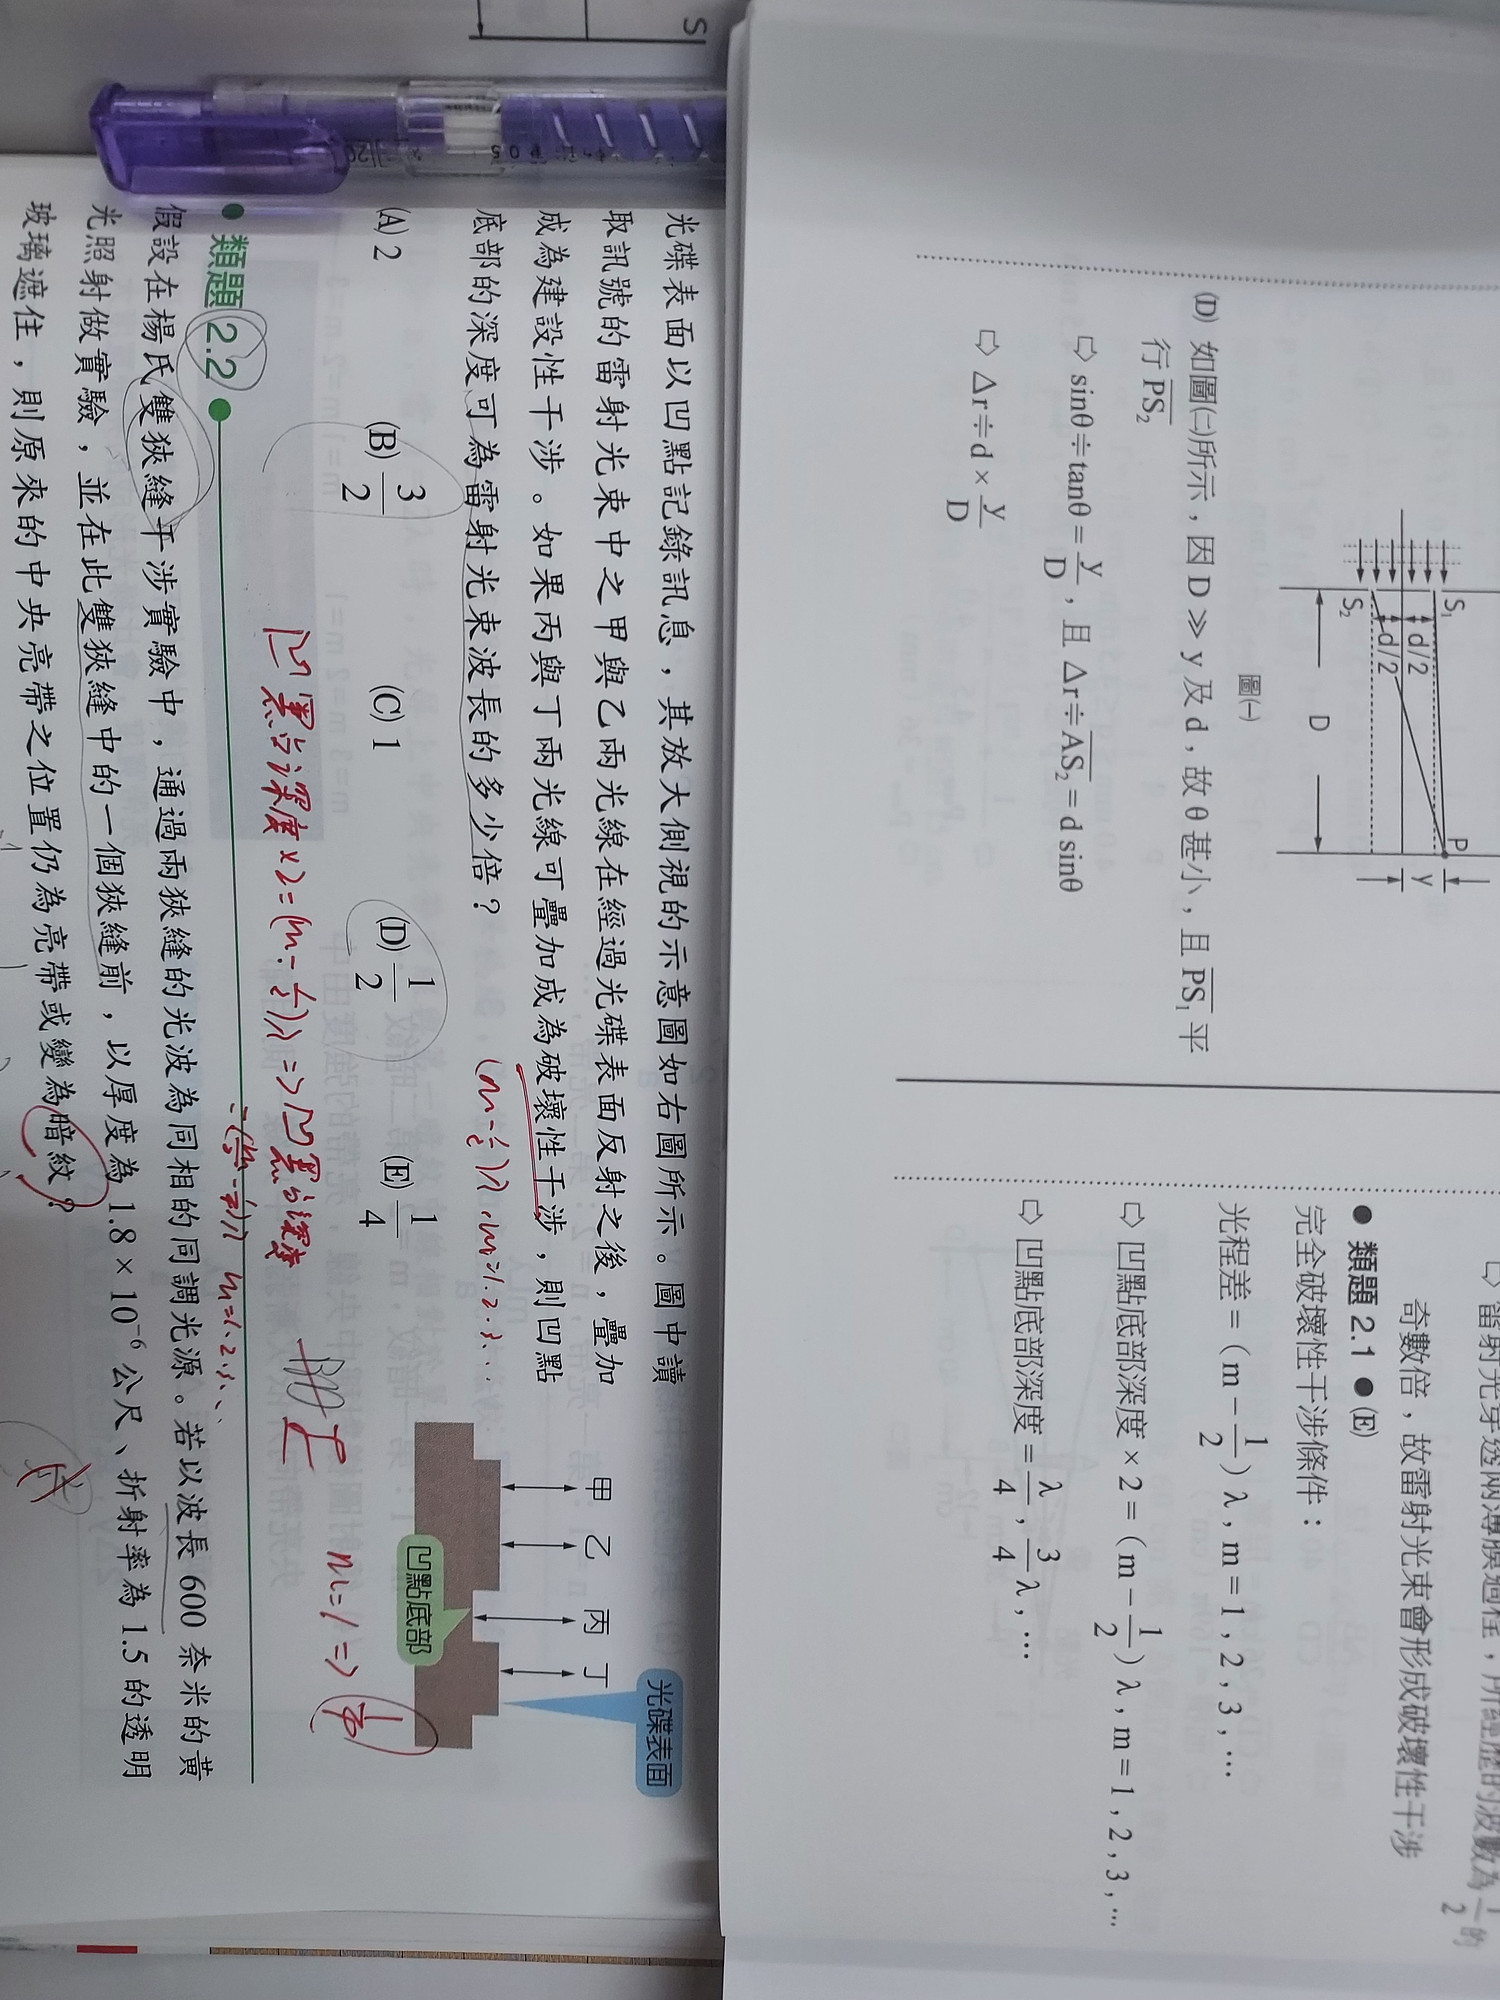 (D) 如圖㈡所示，因 D ≫ y 及 d，故 θ 甚小，且 PS₁ 平
行 PS₂
⇨ sinθ≒tanθ = y/D，且 Δr≒AS₂ = d sinθ
⇨ Δr≒d × y/D
S₁
S₂
d/2
d/2
P
y
D
圖㈠
奇數倍，故雷射光束會形成破壞性干涉
● 類題 2.1 ● (E)
完全破壞性干涉條件：
光程差 =（m − 1/2）λ，m = 1，2，3，…
⇨ 凹點底部深度 × 2 =（m − 1/2）λ，m = 1，2，3，…
⇨ 凹點底部深度 = λ/4，3/4 λ，…
S
光碟表面以凹點記錄訊息，其放大側視的示意圖如右圖所示。圖中讀
取訊號的雷射光束中之甲與乙兩光線在經過光碟表面反射之後，疊加
成為建設性干涉。如果丙與丁兩光線可疊加成為破壞性干涉，則凹點
底部的深度可為雷射光束波長的多少倍？
(m-1/2)λ, m=1.2.3...
(A) 2
(B) 3/2
(C) 1
(D) 1/2
(E) 1/4
甲
乙
丙
丁
光碟表面
凹點底部
凹點深度×2=(m-1/2)λ => 凹點深度
=(m/2-1/4)λ m=1.2.3...
m=1 => 1/4
● 類題 2.2 ●
假設在楊氏雙狹縫干涉實驗中，通過兩狹縫的光波為同相的同調光源。若以波長 600 奈米的黃
光照射做實驗，並在此雙狹縫中的一個狹縫前，以厚度為 1.8 × 10⁻⁶ 公尺、折射率為 1.5 的透明
玻璃遮住，則原來的中央亮帶之位置仍為亮帶或變為暗紋？